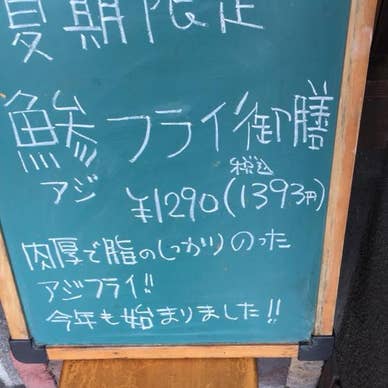 夏期限定
鯵フライ御膳
アジ
税込
¥1290(1393円)
肉厚で脂のしっかりのった
アジフライ!!
今年も始まりました!!